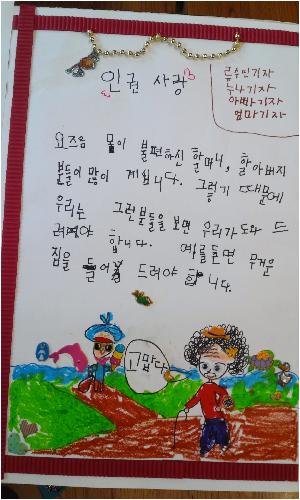 인권 사랑
류수민기자
누나기자
아빠기자
엄마기자
요즈음 몸이 불편하신 할머니, 할아버지
분들이 많이 계십니다. 그렇기 때문에
우리는 그런분들을 보면 우리가 도와 드
려야 합니다. 예를들면 무거운
짐을 들어 드려야 합니다.
고맙다